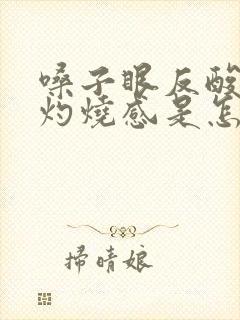 嗓子眼反酸
灼燒感是怎
掃晴娘